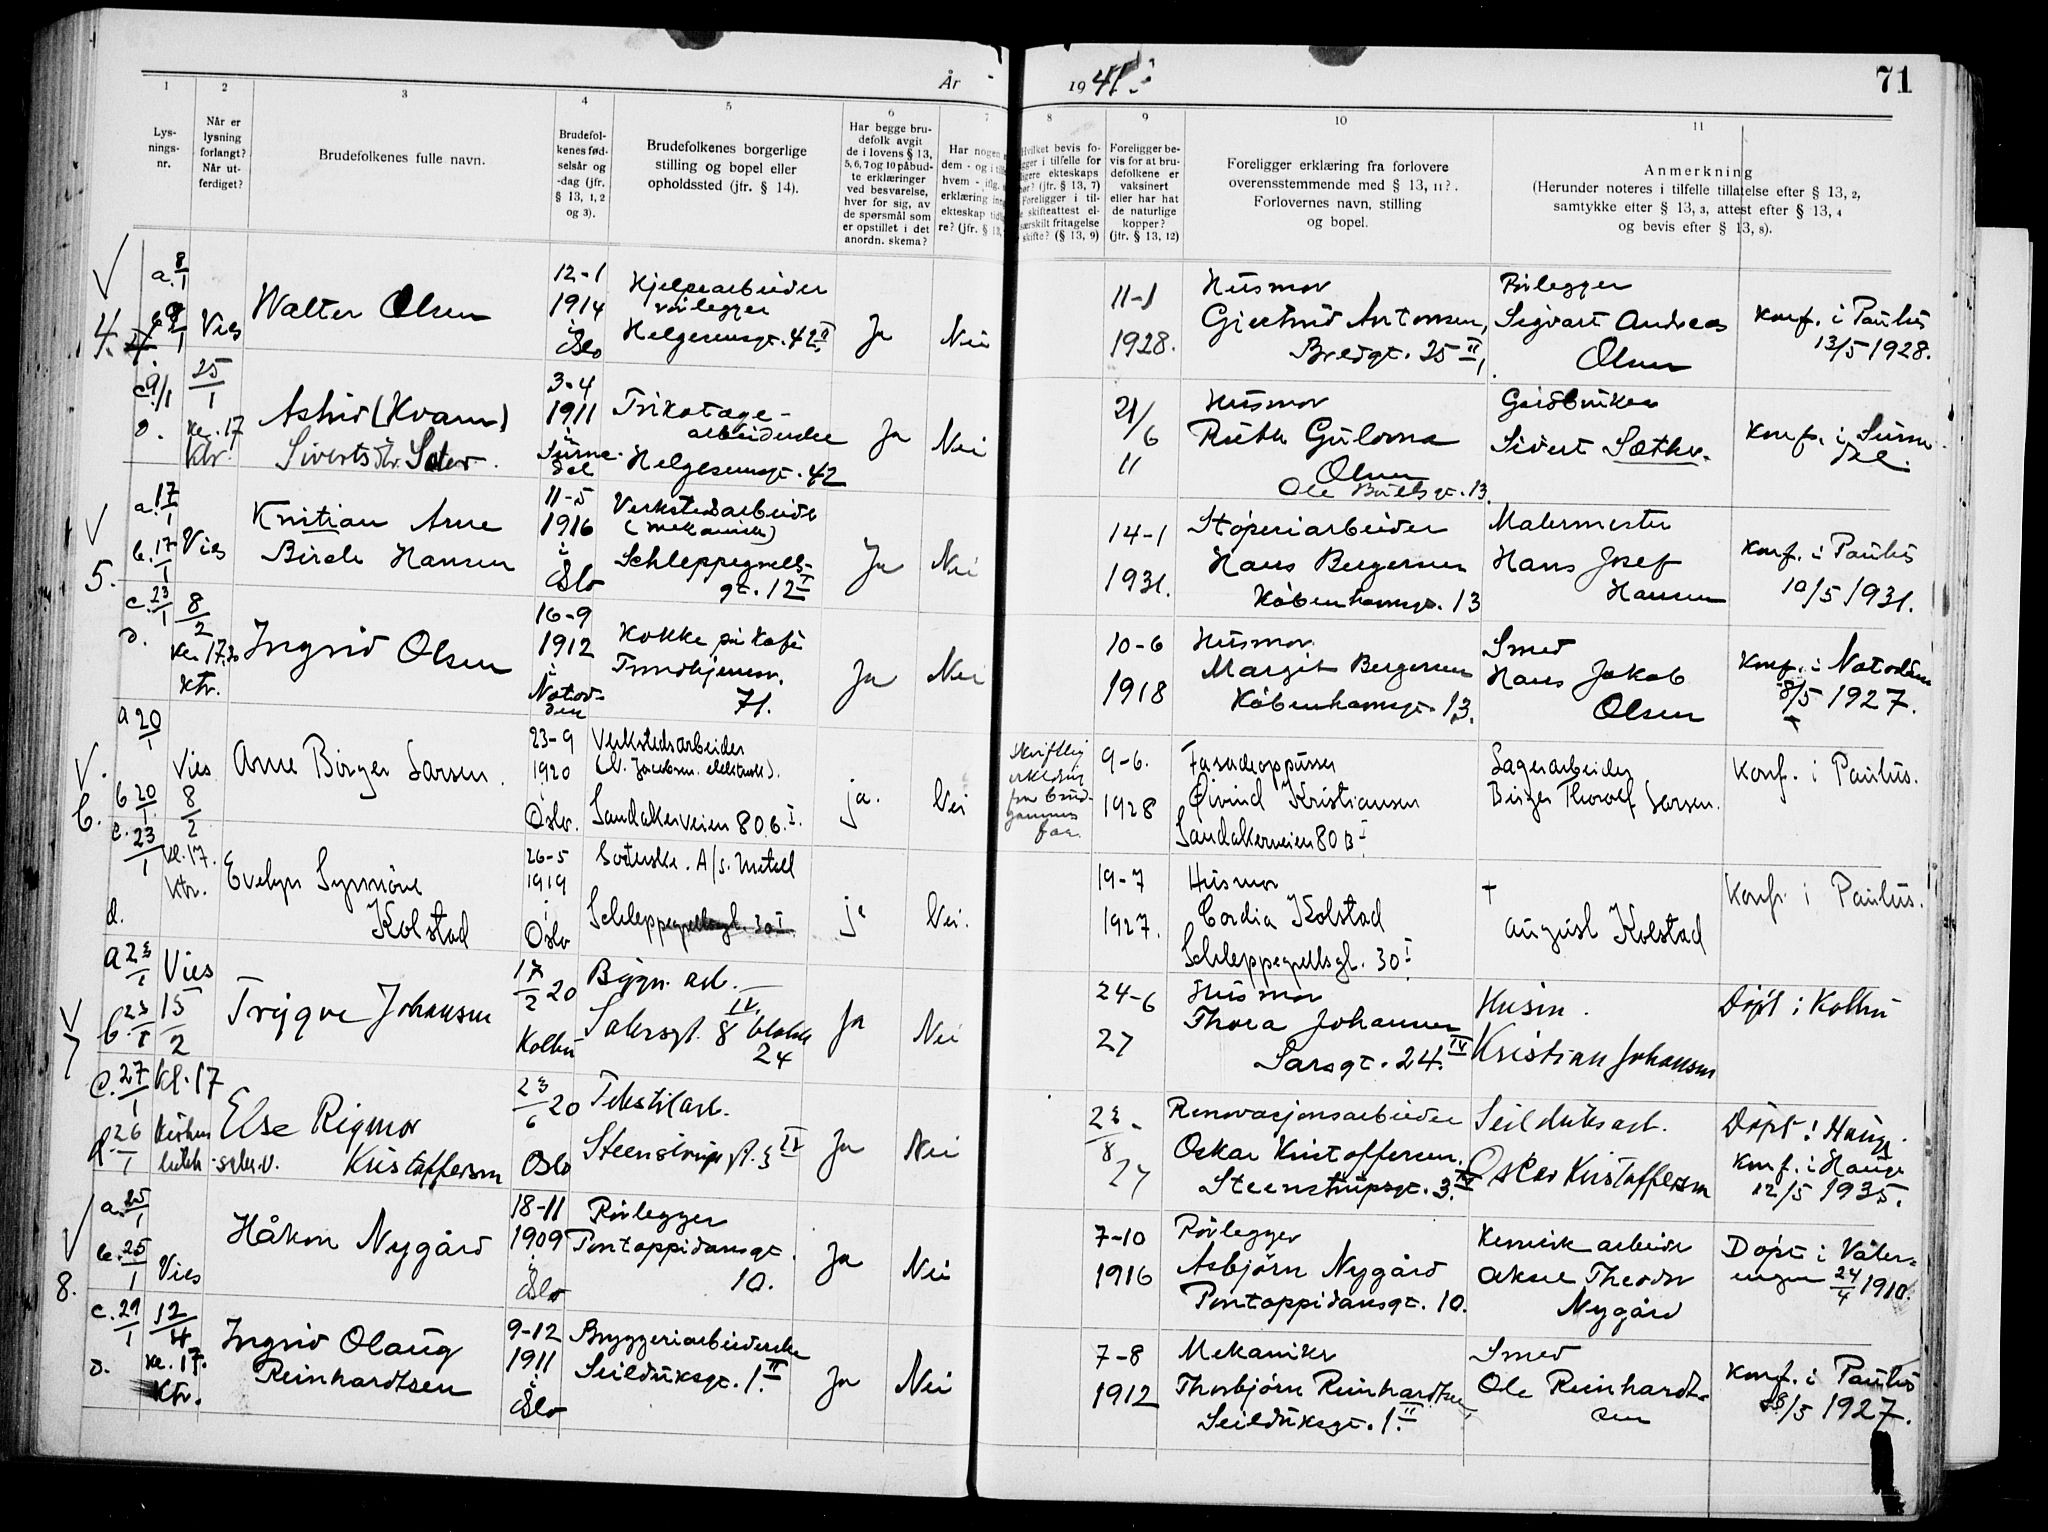 År
1941.
71
1
2
3
4
5
6
7
8
9
10
11
Lys-
nings-
nr.
Når er
lysning
forlangt?
Når ut-
ferdiget?
Brudefolkenes fulle navn.
Brudefol-
kenes fød-
selsår og
-dag (jfr.
§ 13, 1, 2
og 3).
Brudefolkenes borgerlige
stilling og bopel eller
opholdssted (jfr. § 14).
Har begge bru-
defolk avgit
de i lovens § 13,
5, 6, 7 og 10 påbud-
te erklæringer
ved besvarelse,
hver for sig, av
de spørsmål som
er opstillet i det
anordn. skema?
Har nogen
dem - og i
hvem - iflg.
erklæring
ekteskap
re? (jfr. § 13,
Hvilket bevis fo-
i tilfelle for
ekteskaps
(jfr. § 13, 7)
Foreligger i til-
skifteattest el-
særskilt fritagelse
skifte? (§ 13, 9)
Foreligger be-
vis for at bru-
defolkene er
vaksinert
eller har hat
de naturlige
kopper?
(jfr. § 13, 12)
Foreligger erklæring fra forlovere
overensstemmende med § 13, 11?.
Forlovernes navn, stilling
og bopel.
Anmerkning
(Herunder noteres i tilfelle tillatelse efter § 13, 2,
samtykke efter § 13, 3, attest efter § 13, 4
og bevis efter § 13, 8).
4.
a. 8/1
c. 9/1
d.
Vies
25/1
kl. 17
ktr.
Walter Olsen
12-1
1914
i
Oslo
Hjelpearbeider
rørlegger
Helgesensgt. 42 II
Ja
Nei
11-1
1928.
Husmor
Gjertrud Antonsen,
Bredgt. 25 II
Rørlegger
Sigvart Andreas
Olsen
Konf. i Paulus
13/5 1928.
Astrid (Kvam)
Siverts dtr. Sæter.
3-4
1911
i
Surna-
dal
Trikotage-
arbeiderske
Helgesensgt. 42
Ja
Nei
21/
6
11
Husmor
Ruth Gulorna
Olsen
Ole Bullsgt. 13.
Gårdbruker
Sivert Sæther.
Konf. i Surna-
dal.
5.
a. 17/1
b. 17/1
c. 23/1
d.
Vies
8/2
kl. 17.20
ktr.
Kristian Arne
Birch Hansen
11-5
1916
i
Oslo
Verkstedarbeider
(mekanisk)
Schleppegrells-
gt. 12 I
Ja
Nei
14-1
1931.
Støperiarbeider
Hans Bergersen
Københavnsgt. 13
Malermester
Hans Josef
Hansen
Konf. i Paulus
10/5 1931.
Ingrid Olsen
16-9
1912
i
Notod-
den
Kokke på Kafé
Trondhjemsv.
71.
Ja
Nei
10-6
1918
Husmor
Margit Bergersen
Københavnsgt. 13.
Smed
Hans Jakob
Olsen
Konf. i Notodden
8/5 1927.
6.
a 20/1
b 20/1
c. 23/1
d.
Vies
8/2
kl. 17.
ktr.
Arne Birger Larsen.
23-9
1920
Oslo.
Verkstedsarbeider
Sandakerveien 80 B. I.
ja.
Nei
Skriftlig
erklæring
fra brud-
gommens
far.
9-6.
1928
Fasadepusser
Øivind Kristiansen
Sandakerveien 80 B I
Lagerarbeider
Birger Thorolf Larsen.
Konf. i Paulus.
Evelyn Synnöve
Kolstad
26-5
1919
i
Oslo
Lodderske. A/S. Metall
Schleppegrellsgt. 30 I.
ja
Nei.
19-7
1927.
Husmor
Cordia Kolstad
Schleppegrellsgt. 30 I
†
August Kolstad
Konf. i Paulus.
7
a 23/1
b. 23/1
c. 27/1
d. 26/1
Vies
15/2
Kl. 17
Trygve Johansen
17/2 20
Kolbu
Bygn. arb.
Sarsgt. 8 blokk IV
24
Ja
Nei
24-6
27
Husmor
Thora Johansen
Sarsgt. 24. IV
Husm.
Kristian Johansen
Døpt i Kolbu
Else Rigmor
Kristoffersen
23/6 20
Oslo
Tekstilarb.
Steenstrupsgt. 3 IV
Ja
Nei
23/8 -
27
Renovasjonsarbeider
Oskar Kristoffersen.
Steenstrupsgt. 3. IV
Seilduksarb.
Oskar Kristoffersen
Døpt i Hauge.
Konf. i Hauge
12/5 1935.
8.
a. 25/1
b. 25/1
c. 29/1
d.
Vies
12/4
kl. 17.
Ktr.
Håkon Nygård
18-11
1909
i
Oslo
Rørlegger
Pontoppidansgt.
10.
Ja
Nei
7-10
1916
Rørlegger
Asbjørn Nygård
Pontoppidansgt. 10.
Kemisk arbeider
Aksel Theodor
Nygård
Døpt i Våler-
engen 24/4 1910.
Ingrid Olaug
Reinhardtsen
9-12
1911
i
Oslo
Bryggeriarbeiderske
Seilduksgt. 1. II
Ja
Nei
7-8
1912
Mekaniker
Thorbjørn Reinhardtsen,
Seilduksgt. 1. II
Smed
Ole Reinhardt-
sen
Konf. i Paulus
/5 1927.